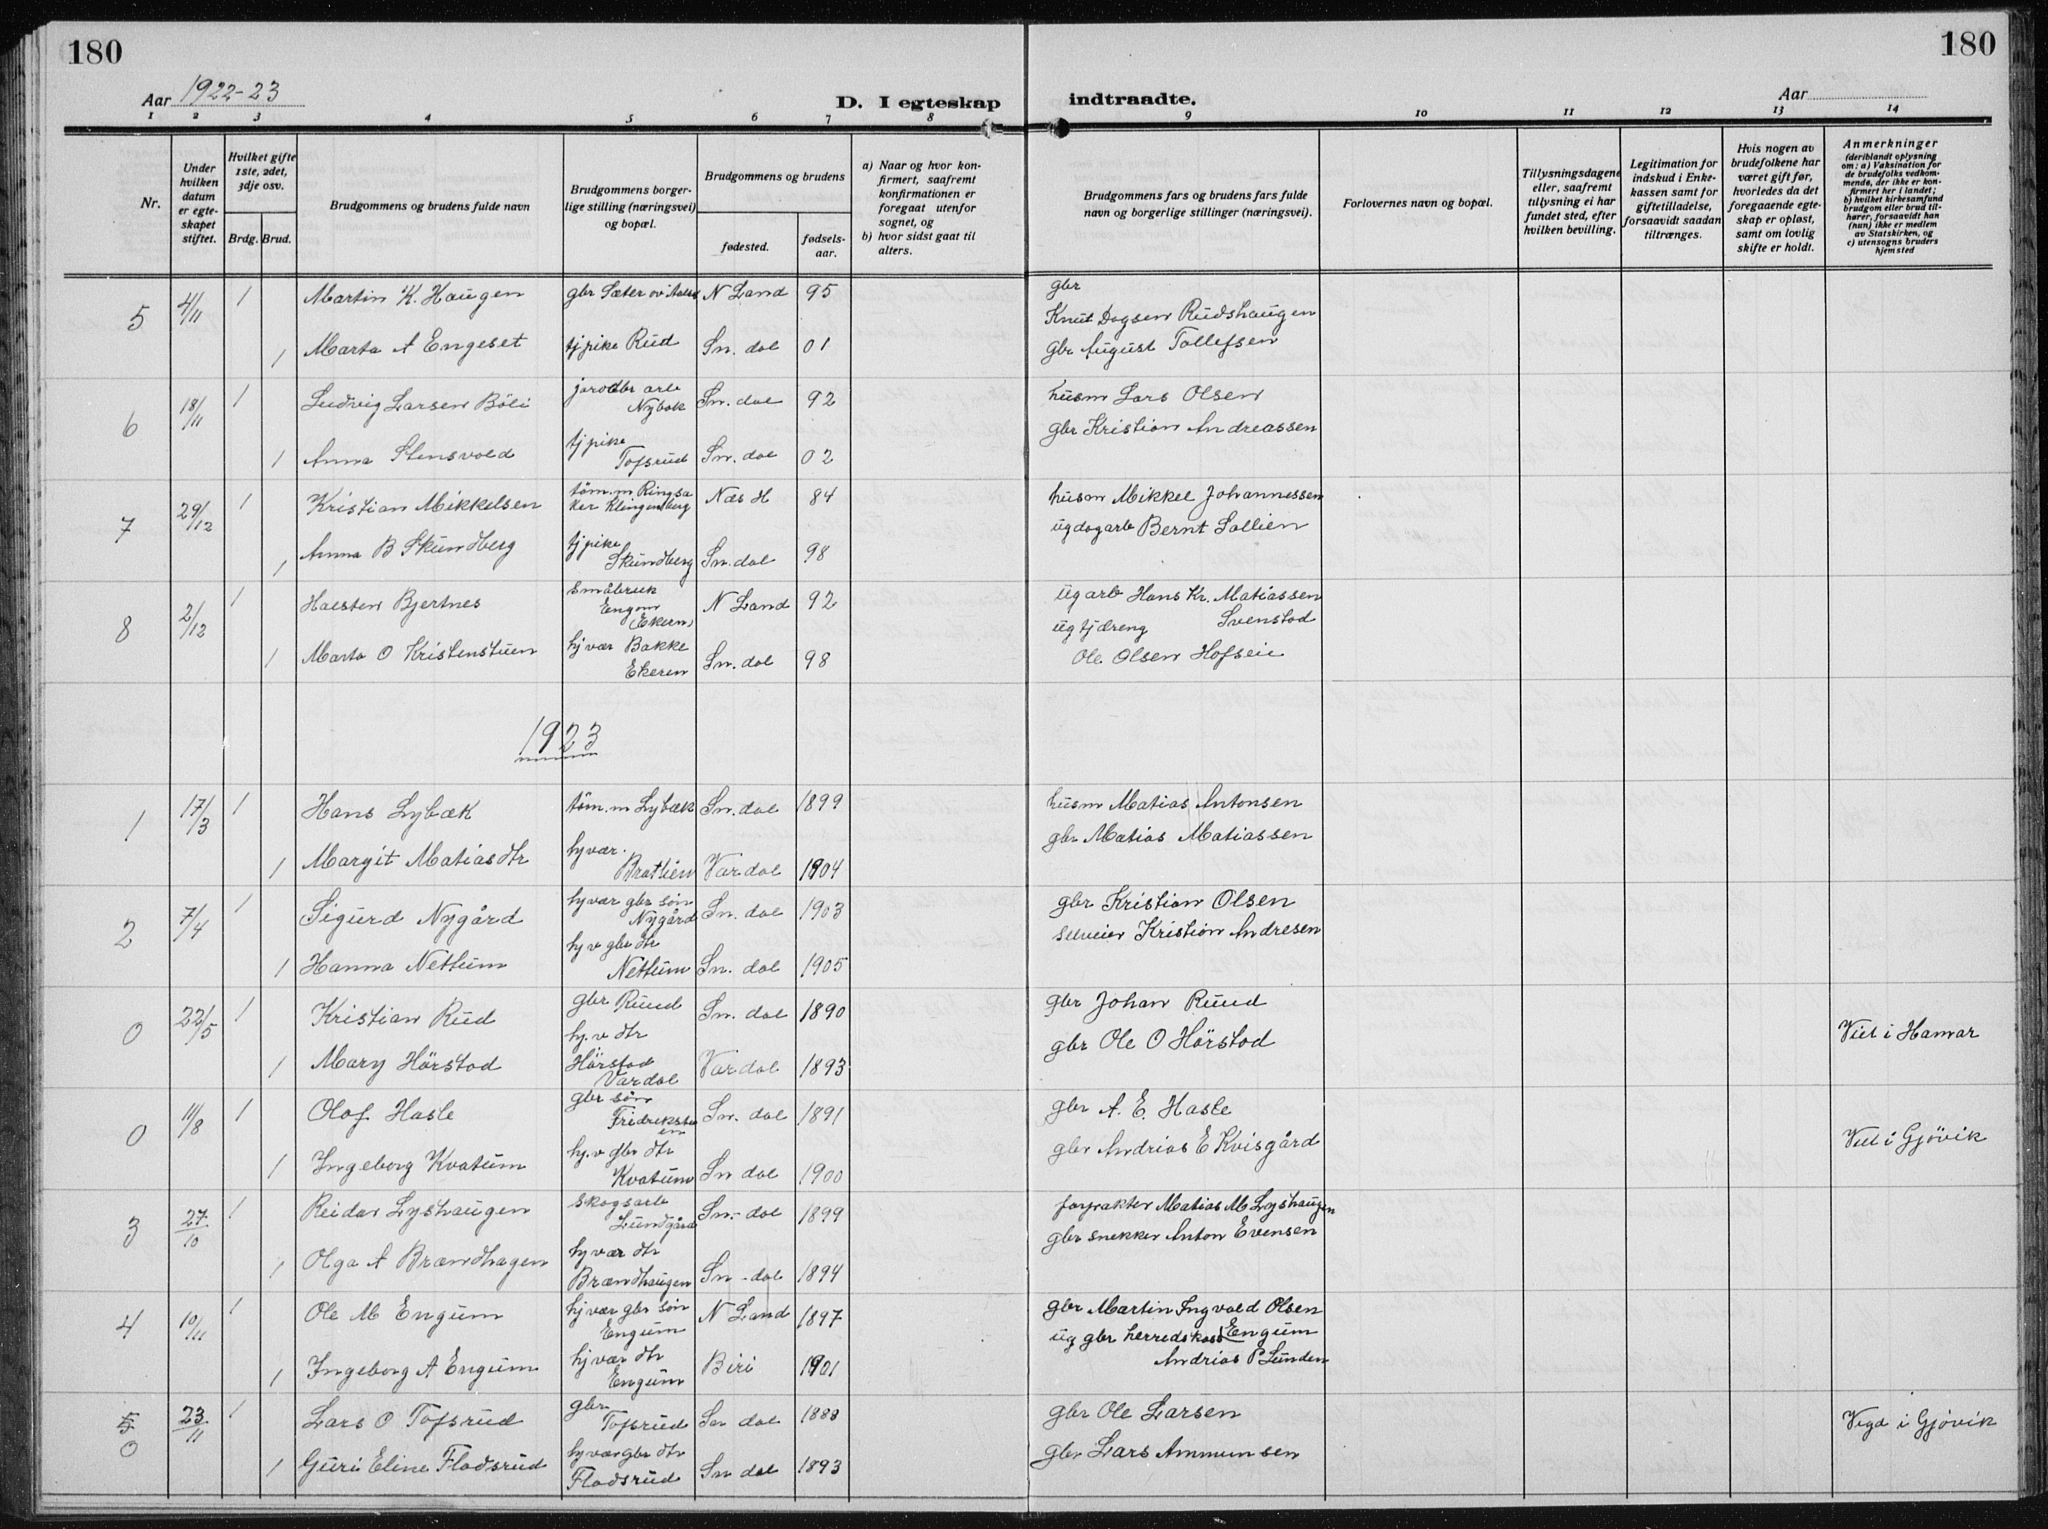 180
180
Aar 1922-23
D. I egteskap
indtraadte.
Aar
1 2 3 4 5 6 7 8 9 10 11 12 13 14
Nr.
Under hvilken datum er egteskapet stiftet.
Hvilket gifte 1ste, 2det, 3dje osv.
Brdg. Brud.
Brudgommens og brudens fulde navn
Brudgommens borgerlige stilling (næringsvei) og bopæl.
Brudgommens og brudens
fødested.
fødselsaar.
a) Naar og hvor konfirmert, saafremt konfirmationen er foregaat utenfor sognet, og
b) hvor sidst gaat til alters.
Brudgommens fars og brudens fars fulde navn og borgerlige stillinger (næringsvei).
Forlovernes navn og bopæl.
Tillysningsdagene eller, saafremt tillysning ei har fundet sted, efter hvilken bevilling.
Legitimation for indskud i Enkekassen samt for giftetilladelse, forsaavidt saadan tiltrænges.
Hvis nogen av brudefolkene har været gift før, hvorledes da det foregaaende egteskap er opløst, samt om lovlig skifte er holdt.
Anmerkninger
(deriblandt oplysning om: a) Vaksination for de brudefolks vedkommende, der ikke er konfirmert her i landet; b) hvilket kirkesamfund brudgom eller brud tilhører, forsaavidt han (hun) ikke er medlem av Statskirken, og c) utensogns bruders hjemsted
5 4/11 1 Martin K. Haugen gbr Sæter N Land 95 gbr
Knut Dagsen Rudshaugen
1 Marta A Engeset tj pike Rud Sn. dal 01 gbr August Tollefsen
6 18/11 1 Ludvig Larsen Böli jordbr arb Nybak Sn. dal 92 husm Lars Olsen
gbr Kristian Andreassen
1 Anna Stensvold tj pike Tofsrud Sn. dal 02
7 29/12 1 Kristian Mikkelsen töm. m Ringsaker Klingenberg Næs H 84 husm Mikkel Johannessen
ug dagarb Bernt Sollien
1 Anna B Skundberg tj pike Skundberg Sn. dal 98
8 2/12 1 Halsten Bjertnes Småbruk Engom (Ekern) N Land 92 ug arb Hans Kr. Matiassen
Svenstad
ug tjdreng
1 Marta O Kristenstuen hj vær Bakke Ekeren Sn. dal 98 Ole Olsen Hofseie
1923
1 17/3 1 Hans Lybæk töm. m Lybæk Sn. dal 1899 husm Matias Antonsen
gbr Matias Matiassen
1 Margit Matiasdtr hj vær. Bratlien Vardal 1904
2 7/4 1 Sigurd Nygård hj vær gbr sön Nygård Sn. dal 1903 gbr Kristian Olsen
selveier Kristian Andresen
1 Hanna Nettum hj v gbr dtr Nettum Sn. dal 1905
0 22/5 1 Kristian Rud gbr Ruud Sn. dal 1890 gbr Johan Ruud
gbr Ole O Hörstad
Viet i Hamar
1 Mary Hörstad hj. v dtr Hörstad Vardal Vardal 1893
0 11/8 1 Olaf Hasle gbr sön Fredriksstuen Sn. dal 1891 gbr A. E. Hasle
gbr Andrias E Kvisgård
Viet i Gjövik
1 Ingeborg Kvatum hj. v gbr dtr Kvatum Sn dal 1900
3 27/10 1 Reidar Lyshaugen Skogsarb Lundgård Sn.- dal 1899 forpakter Matias M Lyshaugen
gbr snekker Anton Evensen
1 Olga A Brændhagen hj vær dtr Brændhaugen Sn - dal 1894
4 10/11 1 Ole M Engum hj vær gbr sön Engum N Land 1897 gbr Martin Ingvald Olsen
Engum
ug gbr herredskass
Andrias P Lunden
1 Ingeborg A Engum hj vær dtr Engum Biri 1901
5 0 23/11 1 Lars O Tofsrud gbr Tofsrud Sn dal 1888 gbr Ole Larsen
Vigd i Gjövik
1 Guri Eline Fladsrud hj vær gbr dtr Fladsrud Sn dal 1893 gbr Lars Ammunsen